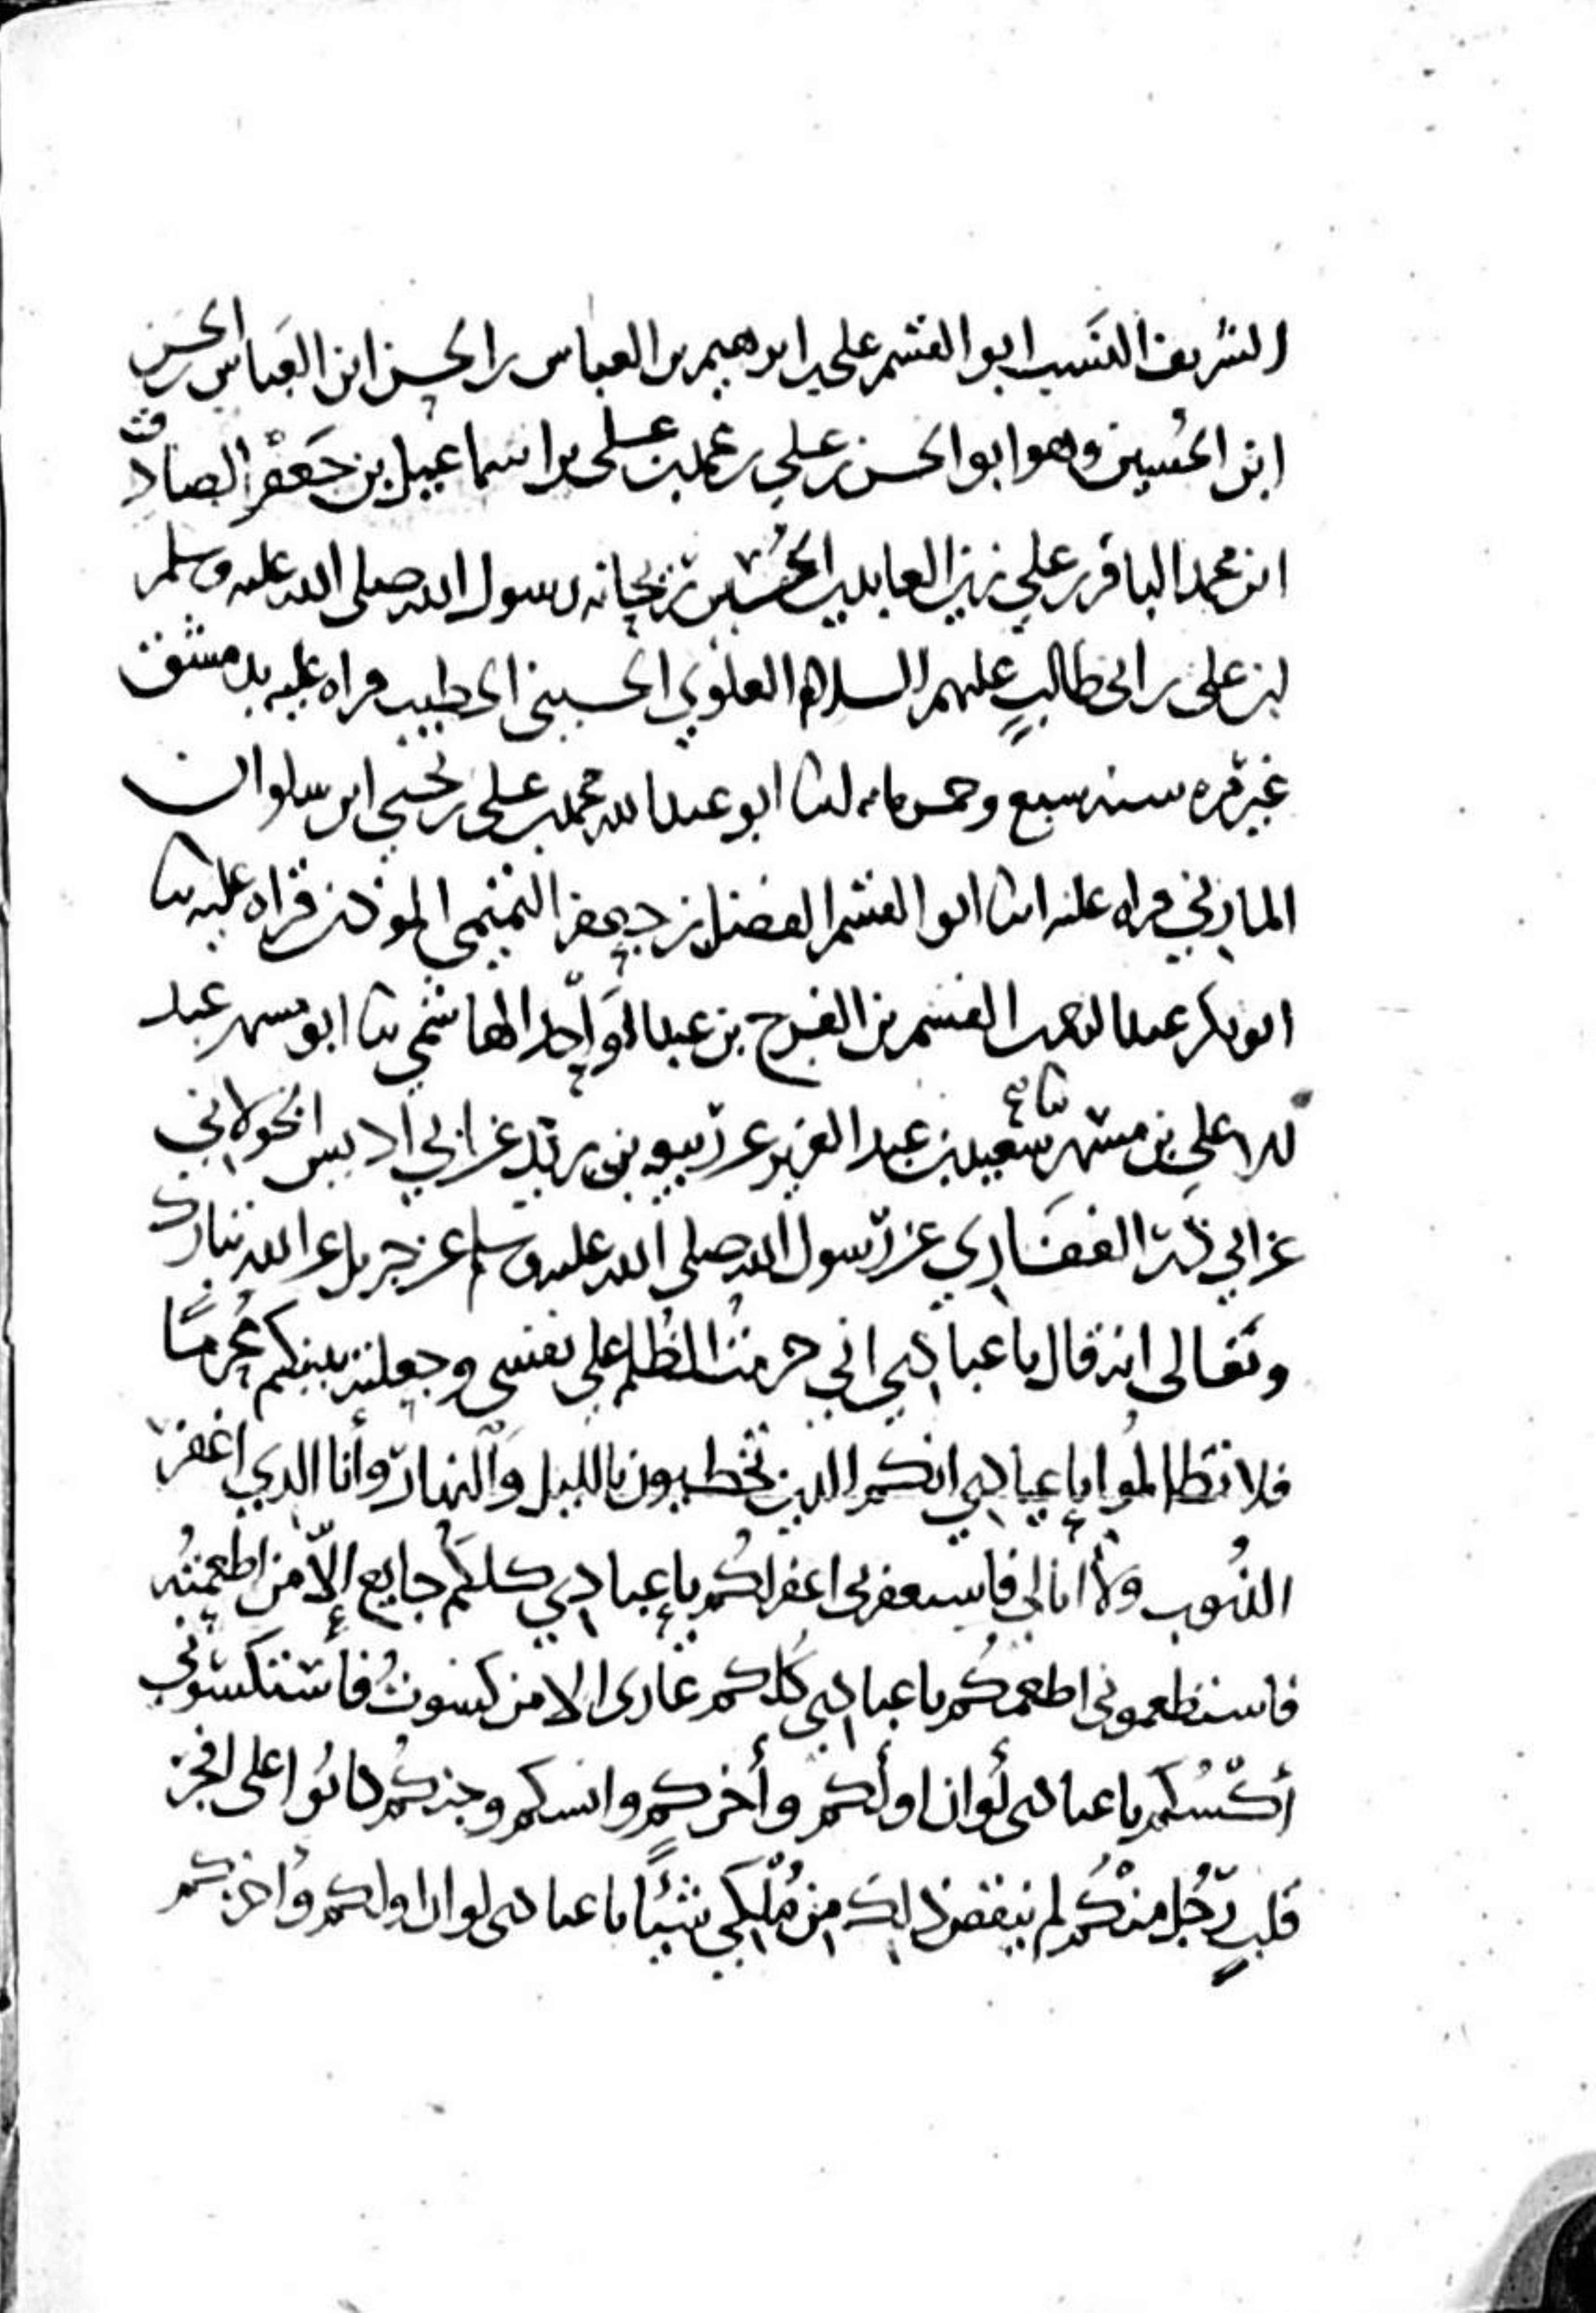 الشريف النسيب ابو القسم علي بن ابرهيم بن العباس بن الحسن ابن العباس بن الحسن
ابن الحسين وهو ابو الحسن بن علي بن محمد بن علي بن اسماعيل بن جَعفْر الصادق
ابن محمد الباقر بن علي زين العابدين بن الحُسَين ريحانه رسول الله صلى الله عليه وسلم
بن علي بن ابي طالبٍ عليهم السلام العلوي الحسيني الخطيب قراه عليه بدمشق
غير مره سنه سبع وخمس مايه ابنا ابو عبد الله محمد بن علي بن يحيى ابن سلوان
المازني قراه عليه ابنا ابو القسم الفضل بن جعفر التميمي الموذن قراه عليه ثنا
ابو بكر عبد الرحمن بن القسم بن الفرج بن عبد الوَاحد الهاشمي ثنا ابو مسهر عبد
الاعلى بن مسهر ثنا سعيد بن عبد العزيز عن ربيعه بن يزيد عن ابي ادريس الخولاني
عن ابي ذر الغفَاري عن رسول الله صلى الله عليه وسلم عن جبريل عن الله تبارك
وتعالى انه قال يا عبادي اني حرمت الظُلم على نفسي وجعلته بينكم مُحرمًا
فلا تظالمُوا يا عبادي انكم الذين تخطيون بالليل وَالنهار وأنا الذي اغفر
الذنُوب ولاَ ابالي فاستغفروني اغفر لكُم يا عبادي كلكُم جايع إلّا من اطعمتُه
فاستطعموني اطعمكُم يا عبادي كُلكم عاري الا من كسوتُ فاستكسوني
أكسُكم يا عبادي لَو ان اولكم وأخركم وانسكم وجنكُم كانُوا على افجر
قلبِ رَجُل منْكُم لم ينقص ذلكَ من مُلْكي شيئًا يا عبادي لو ان اولكم وأخركم